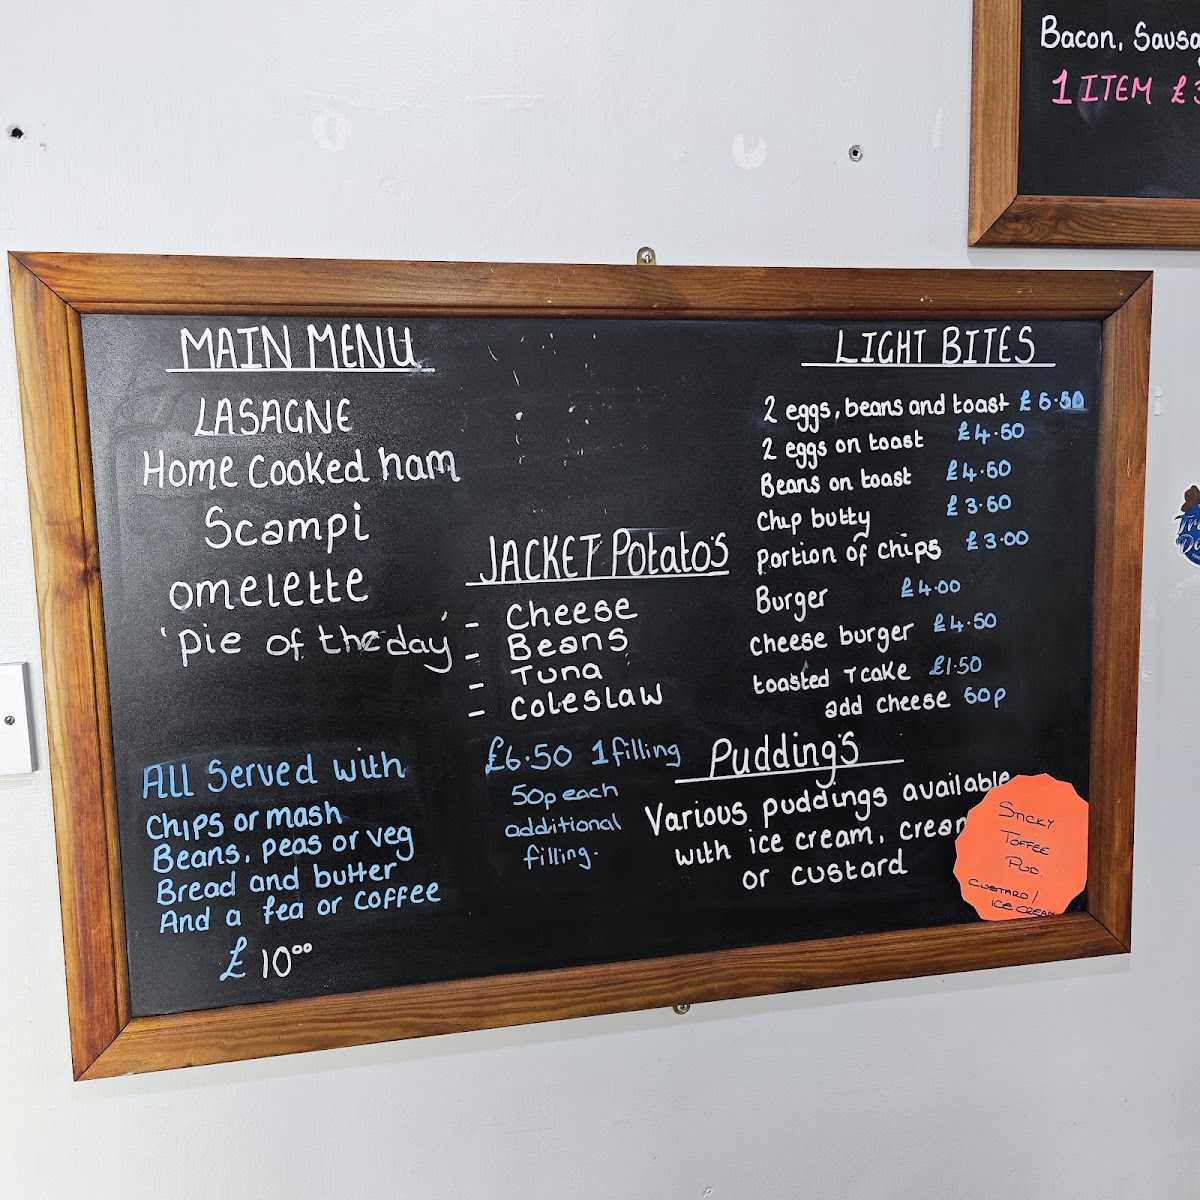 Bacon, Sausa
1 ITEM £3
MAIN MENU
LASAGNE
Home cooked ham
Scampi
omelette
'pie of the day'
All served with
Chips or mash
Beans, peas or veg
Bread and butter
And a tea or coffee
£ 10⁰⁰
JACKET Potato's
- Cheese
- Beans
- Tuna
- Coleslaw
£6.50 1 filling
50p each
additional
filling.
LIGHT BITES
2 eggs, beans and toast £5.50
2 eggs on toast £4.50
Beans on toast £4.50
Chip butty £3.50
portion of chips £3.00
Burger £4.00
cheese burger £4.50
toasted Tcake £1.50
add cheese 50p
Pudding's
Various puddings available
with ice cream, cream
or custard
STICKY
TOFFEE
PUD.
CUSTARD/
ICE CREAM